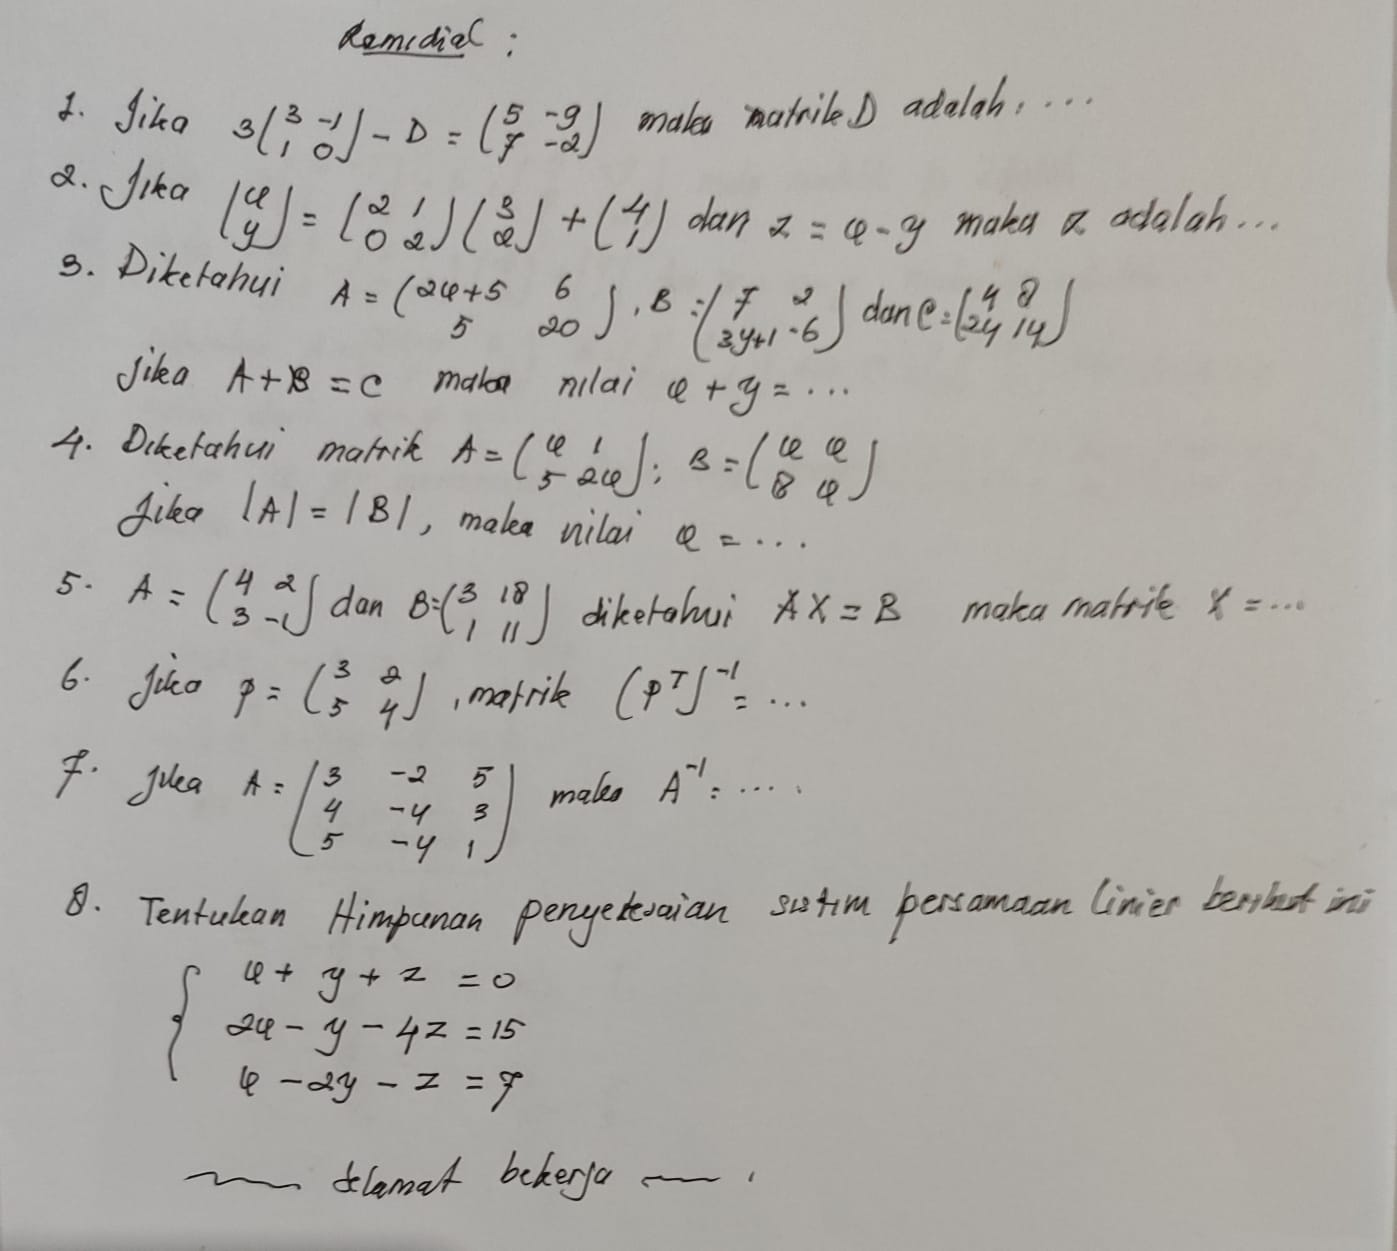 Remidial :
1. Jika 3(3 -1 1 0) - D = (5 -9 7 -2) maka matrik D adalah....
2. Jika (x y) = (2 1 0 2)(3 2) + (4 1) dan z = x - y maka z adalah...
3. Diketahui A = (2x+5 6 5 20), B = (7 2 3y+1 -6) dan C = (4 8 2y 14)
Jika A + B = C maka nilai x + y = ...
4. Diketahui matrik A = (x 1 5 2x); B = (x x 8 x)
Jika |A| = |B|, maka nilai x = ...
5. A = (4 2 3 -1) dan B = (3 18 1 11) diketahui AX = B maka matrik X = ...
6. Jika P = (3 2 5 4), matrik (P^T)^-1 = ...
7. Jika A = (3 -2 5 4 -4 3 5 -4 1) maka A^-1 = ....
8. Tentukan Himpunan penyelesaian sistim persamaan linier berikut ini
x + y + z = 0
2x - y - 4z = 15
x - 2y - z = 7
selamat bekerja